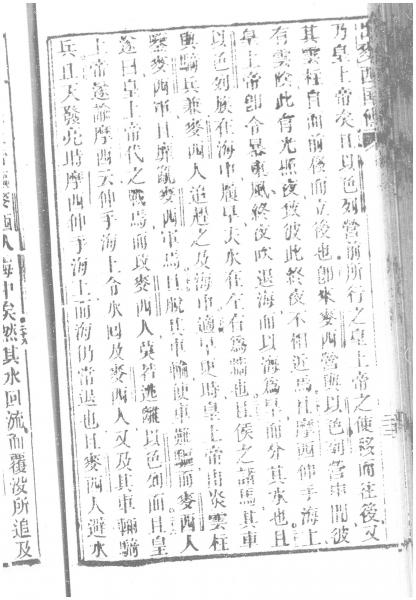 出麥西國傳
乃皇上帝矣且以色列營前所行之皇上帝之使移而往後又
其雲柱自面前後而立後也卽來麥西營與以色列營中間彼
有雲陰此有光照夜致彼此終夜不相近焉且摩西伸手海上
皇上帝卽令暴東風終夜吹退海而以海爲旱而分其水也且
以色列族在海中履旱夫水在左右爲牆也且侯之諸馬其車
與騎兵兼麥西人追趕之及海中適早更時皇上帝由炎雲柱
鑒麥西軍且擾亂麥西軍焉且脫其車輪使車難驅而麥西人
遂曰皇上帝代之戰焉而攻麥西人莫若逃離以色列面且皇
上帝遂諭摩西云伸手海上令水回及麥西人又及其車輛騎
兵且天發亮時摩西伸手海上而海仍常退也且麥西人避水
麥西人海中矣然其水回流而覆沒所追及